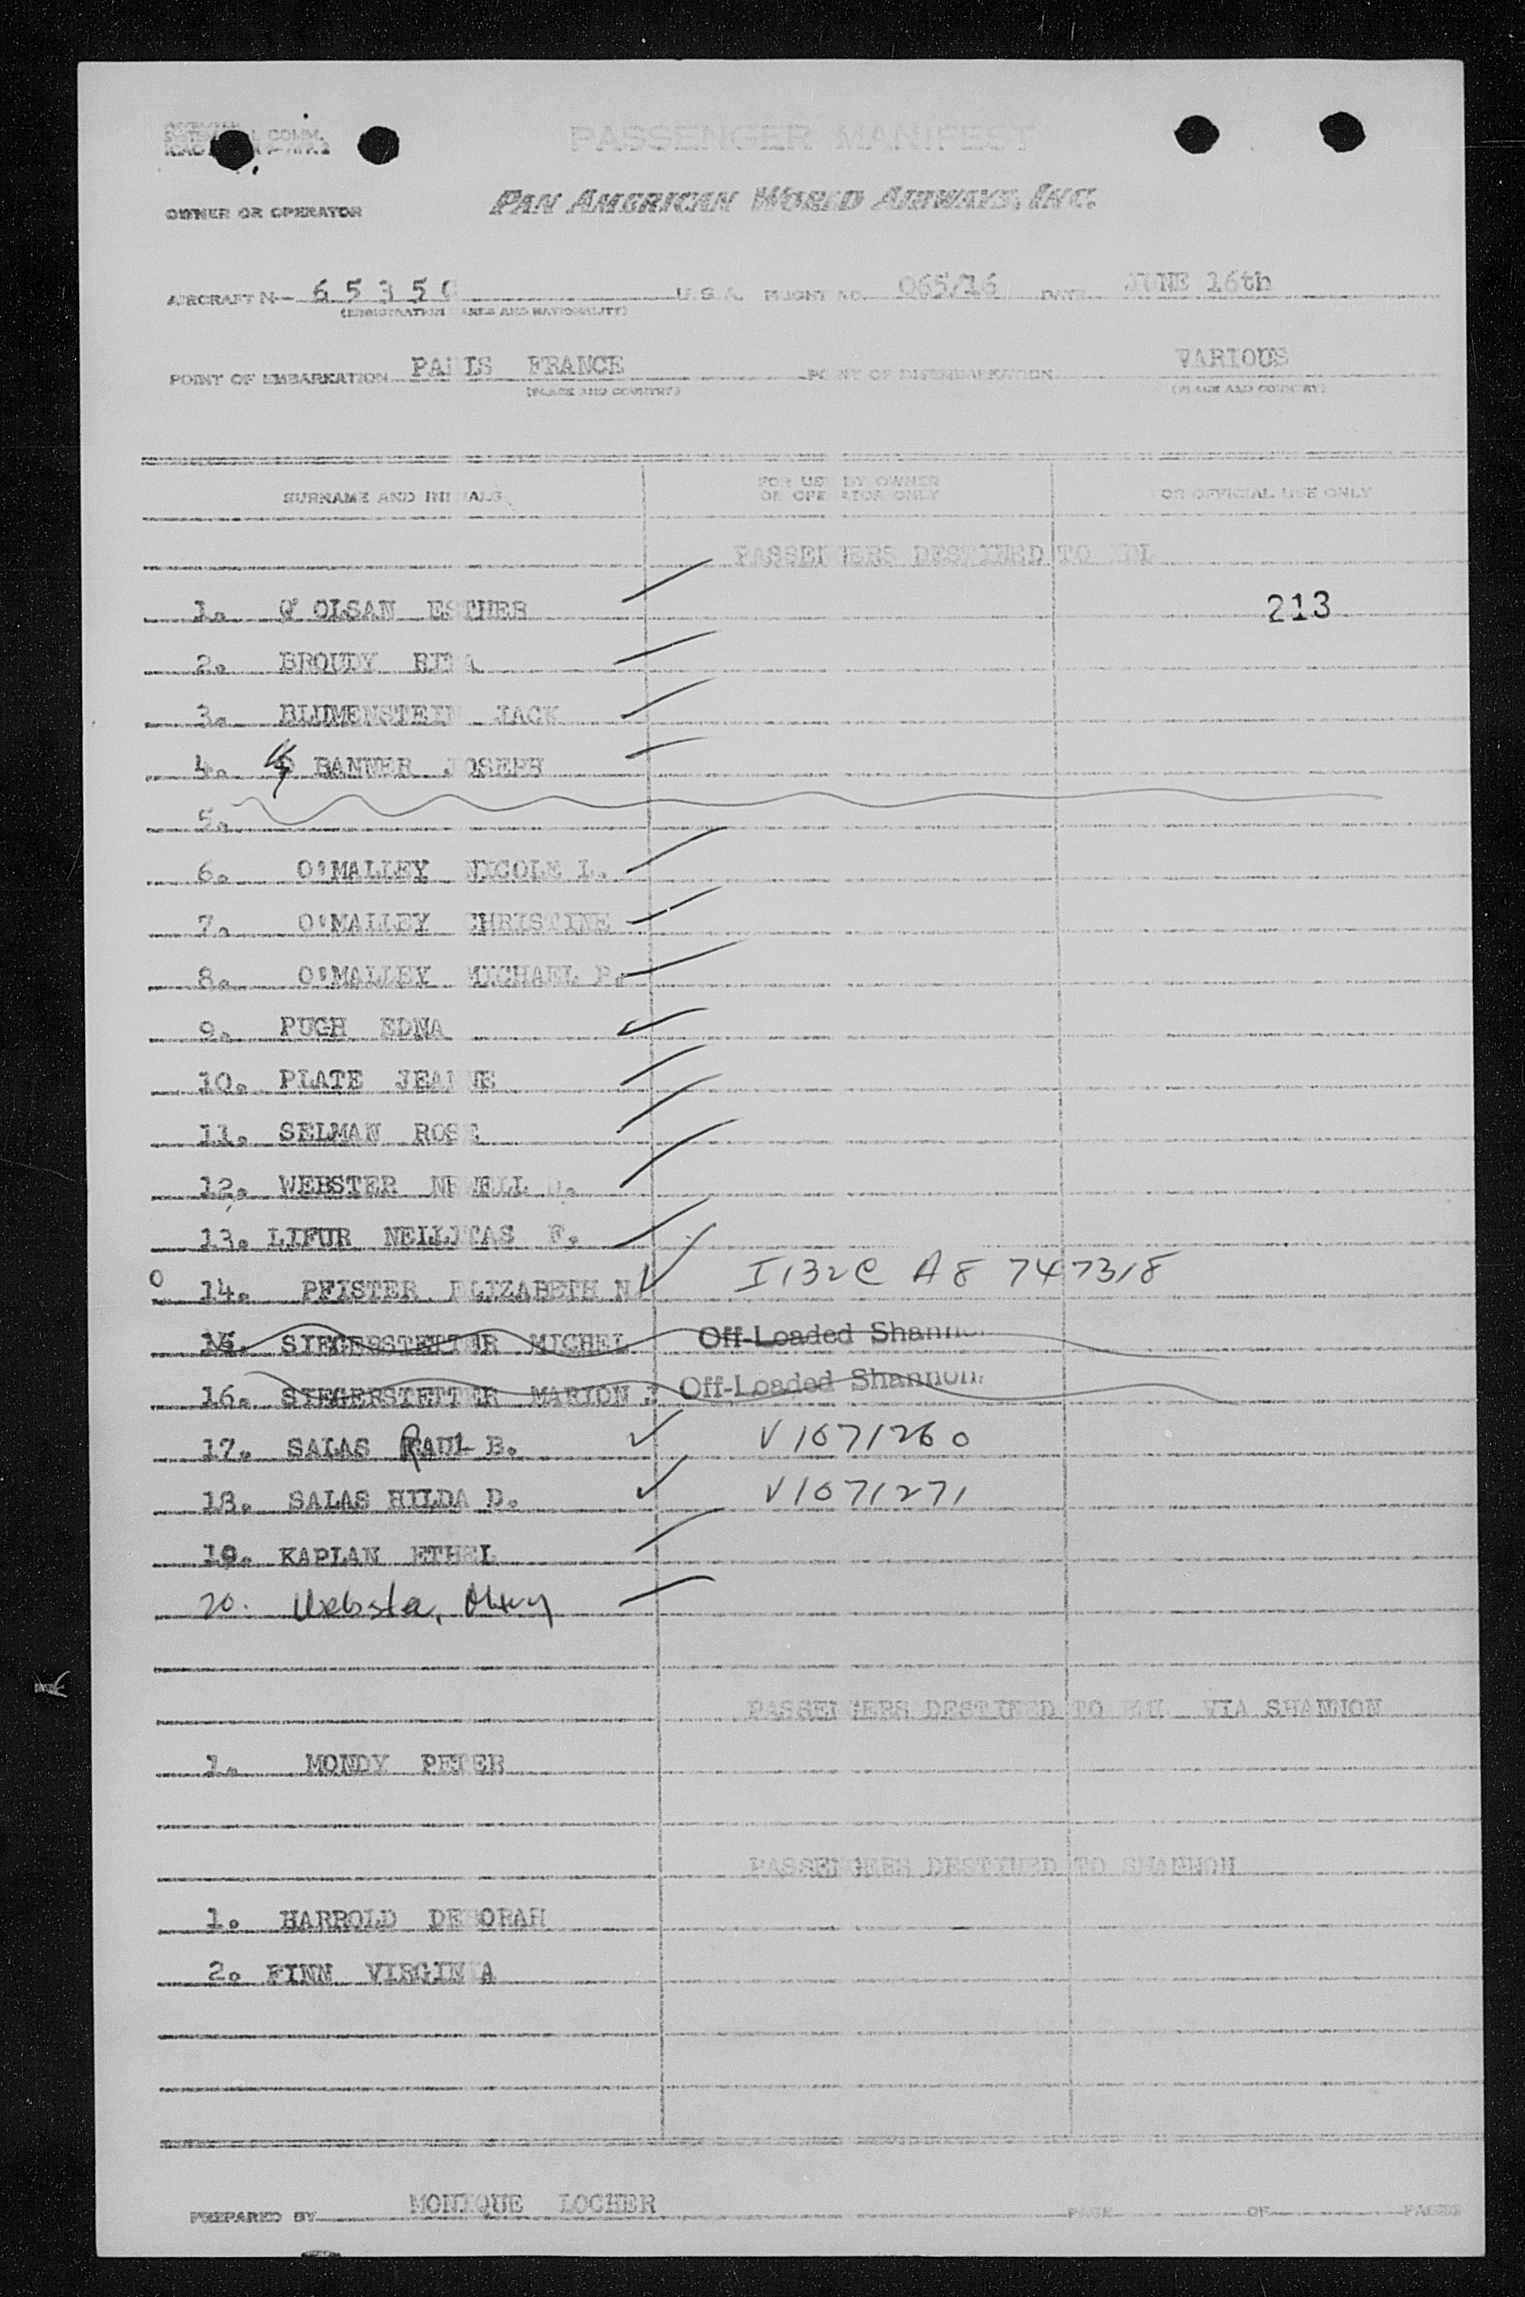 PASSENGER MANIFEST
OWNER OR OPERATOR PAN AMERICAN WORLD AIRWAYS, INC.
AIRCRAFT N 6535 U.S.A. FLIGHT NO. 065/16 DATE JUNE 16th
(REGISTRATION MARKS AND NATIONALITY)
POINT OF EMBARKATION PARIS FRANCE POINT OF DISEMBARKATION VARIOUS
(PLACE AND COUNTRY) (PLACE AND COUNTRY)
SURNAME AND INITIALS FOR USE BY OWNER OR OPERATOR ONLY FOR OFFICIAL USE ONLY
PASSENGERS DESTINED TO IDL
1. OLSAN ESTHER 213
2. BROUDY RITA
3. BLUMENSTEIN JACK
4. BANNER JOSEPH
5.
6. O'MALLEY NICOLE L.
7. O'MALLEY CHRISTINE
8. O'MALLEY MICHAEL P.
9. PUGH EDNA
10. PLATE JEANNE
11. SELMAN ROSE
12. WEBSTER NEWELL D.
13. LIFUR NELLITAS F.
O 14. PFISTER ELIZABETH N. I132C A8 747318
15. SIEGERSTETTER MICHEL Off-Loaded Shannon
16. SIEGERSTETTER MARION Off-Loaded Shannon
17. SALAS RAUL B. V1071260
18. SALAS HILDA D. V1071271
19. KAPLAN ETHEL
20. Webster,
PASSENGERS DESTINED TO VIA SHANNON
1. MONDY PETER
PASSENGERS DESTINED TO SHANNON
1. HARROLD DEBORAH
2. FINN VIRGINIA
PREPARED BY MONIQUE LOCHER PAGE OF PAGES